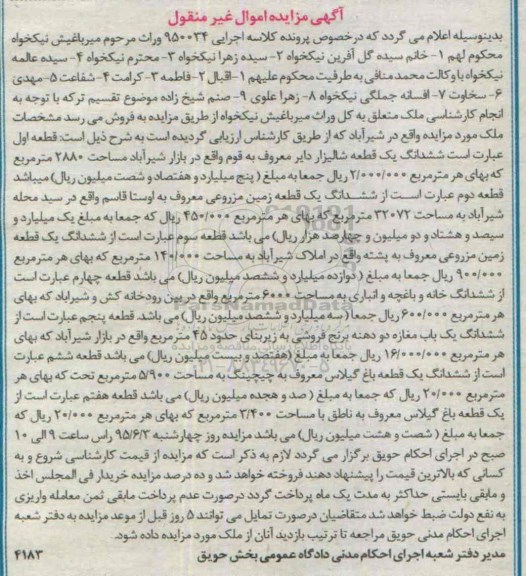 آگهی مزایده اموال غیر منقول
بدینوسیله اعلام می گردد که درخصوص پرونده کلاسه اجرایی ۹۵۰۰۳۴ وراث مرحوم میرباغیش نیکخواه
محکوم لهم ۱- خانم سیده گل آفرین نیکخواه ۲- سیده زهرا نیکخواه ۳- محترم نیکخواه ۴- سیده عالمه
نیکخواه با وکالت محمد منافی به طرفیت محکوم علیهم ۱-اقبال ۲-فاطمه ۳- کرامت ۴- شفاعت ۵-مهدی
۶- سخاوت ۷- افسانه جملگی نیکخواه ۸- زهرا علوی ۹- صنم شیخ زاده موضوع تقسیم ترکه با توجه به
انجام کارشناسی ملک متعلق به کل وراث میرباغیش نیکخواه از طریق مزایده به فروش می رسد مشخصات
ملک مورد مزایده واقع در شیرآباد که از طریق کارشناس ارزیابی گردیده است به شرح ذیل است: قطعه اول
عبارت است ششدانگ یک قطعه شالیزار دایر معروف به قوم واقع در بازار شیرآباد مساحت ۲۸۸۰ مترمربع
که بهای هر مترمربع ۲/۰۰۰/۰۰۰ ریال جمعا به مبلغ ( پنج میلیارد و هفتصد و شصت میلیون ریال) میباشد
قطعه دوم عبارت است از ششدانگ یک قطعه زمین مزروعی معروف به اوستا قاسم واقع در سید محله
شیرآباد به مساحت ۳۲۰۷۲ مترمربع که بهای هر مترمربع ۴۵۰/۰۰۰ ریال که جمعا به مبلغ یک میلیارد و
سیصد و هشتاد و دو میلیون و چهارصد هزار ریال) می باشد قطعه سوم عبارت است از ششدانگ یک قطعه
زمین مزروعی معروف به پشته واقع در املاک شیرآباد به مساحت ۱۴۰۰۰ مترمربع که بهای هر مترمربع
۹۰۰/۰۰۰ ریال جمعا به مبلغ ( دوازده میلیارد و ششصد میلیون ریال) می باشد قطعه چهارم عبارت است
از ششدانگ خانه و باغچه و انباری به مساحت ۶۰۰۰ مترمربع واقع در بین رودخانه کش و شیراباد که بهای
هر مترمربع ۶۰۰/۰۰۰ ریال جمعا ( سه میلیارد و ششصد میلیون ریال) می باشد. قطعه پنجم عبارت است از
ششدانگ یک باب مغازه دو دهنه برنج فروشی به زیربنای حدود ۴۵ مترمربع واقع در بازار شیرآباد که بهای
هر مترمربع ۱۶/۰۰۰/۰۰۰ ریال جمعا به مبلغ (هفتصد و بیست میلیون ریال) می باشد قطعه ششم عبارت
است از ششدانگ یک قطعه باغ گیلاس معروف به چیچینگ به مساحت ۵/۹۰۰ مترمربع تحت که بهای هر
مترمربع ۲۰/۰۰۰ ریال که جمعا به مبلغ ( صد و هجده میلیون ریال) می باشد قطعه هفتم عبارت است از
یک قطعه باغ گیلاس معروف به ناطق با مساحت ۳/۴۰۰ مترمربع که بهای هر مترمربع ۲۰/۰۰۰ ریال که
جمعا به مبلغ ( شصت و هشت میلیون ریال) می باشد مزایده روز چهارشنبه ۹۵/۶/۳ راس ساعت ۹ الی ۱۰
صبح در اجرای احکام حویق برگزار می گردد لازم به ذکر است که مزایده از قیمت کارشناسی شروع و به
کسانی که بالاترین قیمت را پیشنهاد دهند فروخته خواهد شد و ده درصد مزایده خریدار فی المجلس اخذ
و مابقی بایستی حداکثر به مدت یک ماه پرداخت گردد درصورت عدم پرداخت مابقی ثمن معامله واریزی
به نفع دولت ضبط خواهد شد متقاضیان درصورت تمایل می توانند ۵ روز قبل از موعد مزایده به دفتر شعبه
اجرای احکام مدنی حویق مراجعه تا ترتیب بازدید آنان از ملک مورد مزایده داده شود.
مدیر دفتر شعبه اجرای احکام مدنی دادگاه عمومی بخش حویق
۴۱۸۳